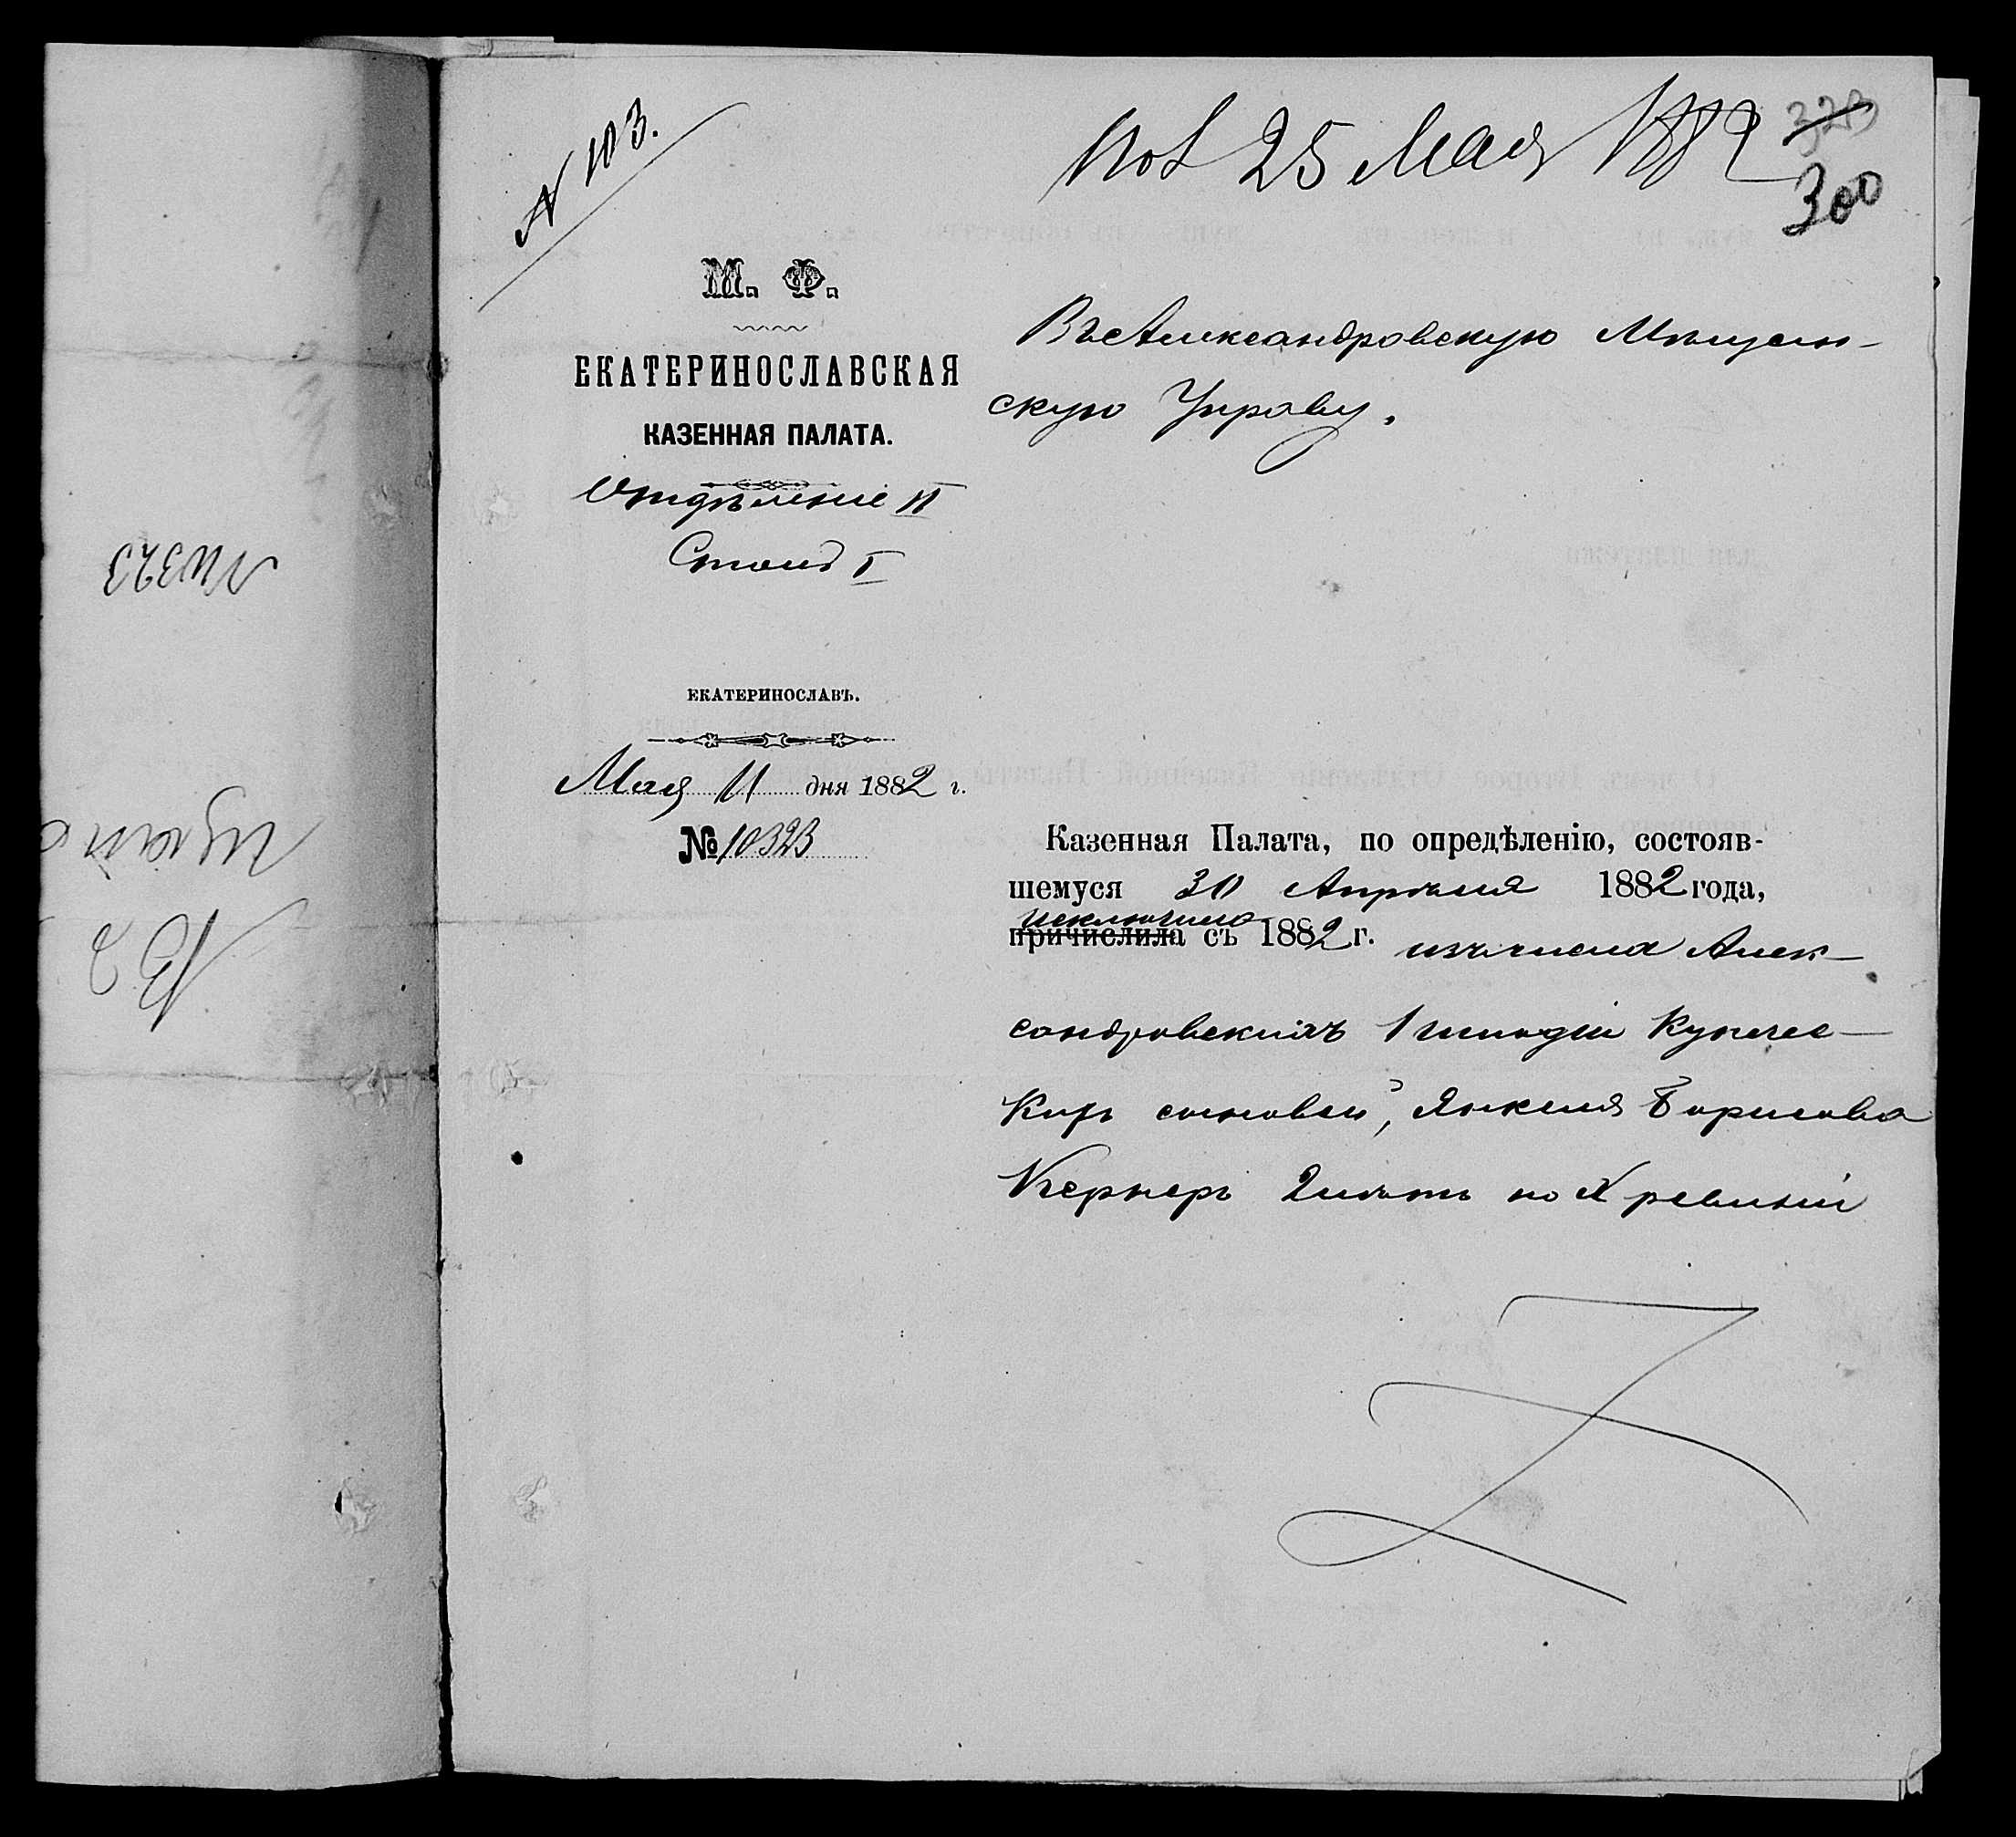 N 103.
Пол 25 Мая 1882
329
300
М. Ф.
ЕКАТЕРИНОСЛАВСКАЯ
КАЗЕННАЯ ПАЛАТА.
Отдѣленіе II
Столъ I
ЕКАТЕРИНОСЛАВЪ.
Мая 11 дня 1882 г.
№ 10323
Въ Александровскую Мѣщан-
скую Управу.
Казенная Палата, по опредѣленію, состояв-
шемуся 30 Апрѣля 1882 года,
исключила
причислила съ 1882 г. изъ числа Алек-
сандровскихъ 1 гильдіи Купечес-
кихъ сыновей, Янкеля Борисова
Кернеръ 2 по X ревизіи